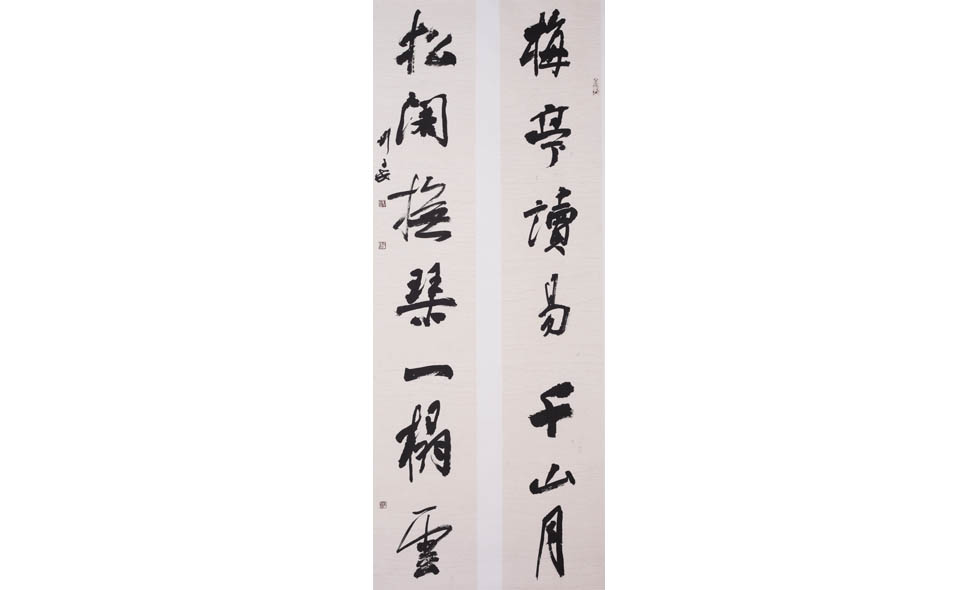 梅亭讀易千山月
松阁撫琴一榻雲